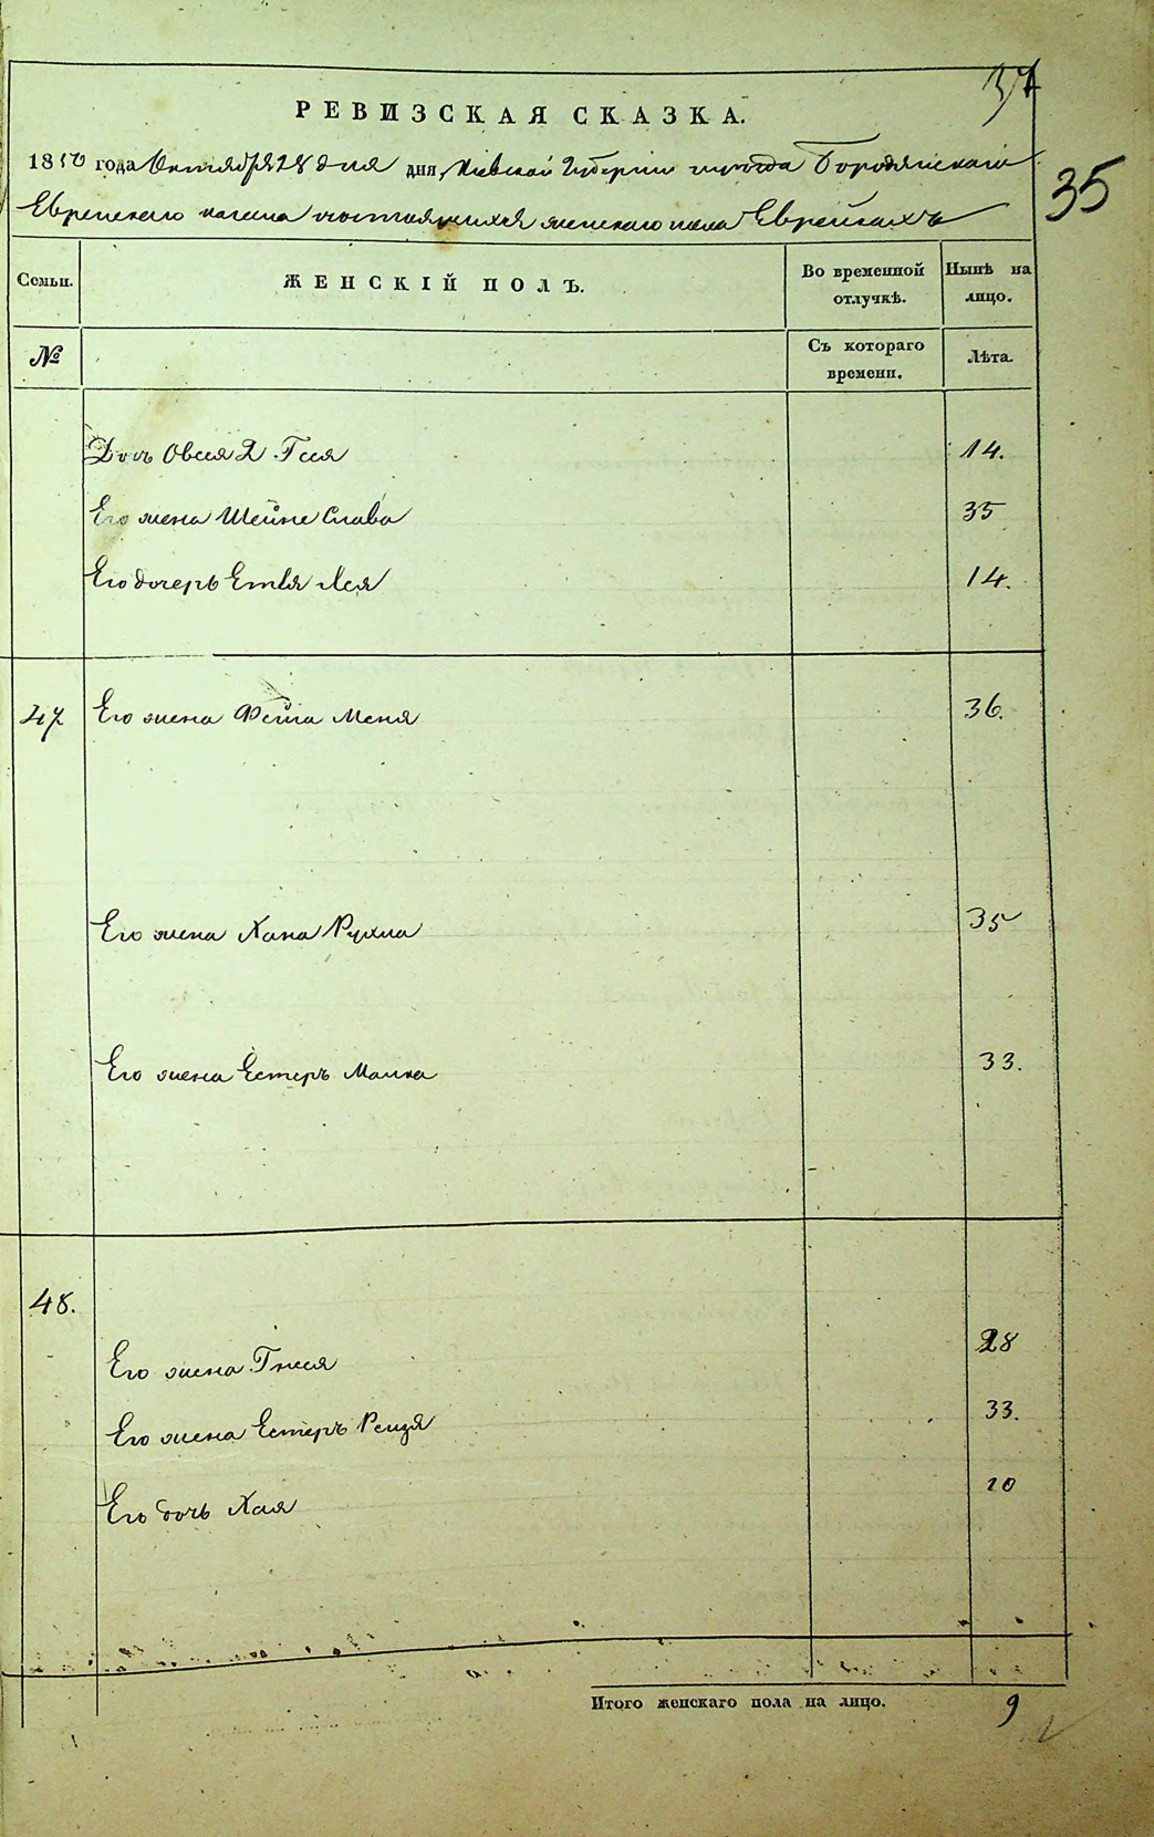 37
РЕВИЗСКАЯ СКАЗКА.
1850 года Октября 28 дня дня, Кіевской Губерніи Бородянскаго
35
Еврейскаго кагала состоящихъ женскаго пола Еврейкахъ
Семьи. ЖЕНСКІЙ ПОЛЪ. Во временной отлучкѣ. Нынѣ на лицо.
№ Съ котораго времени. Лѣта.
Дочь Овсея 2 Гися 14.
Его жена Шейне Слава 35
Его дочерь Ентля Лея 14.
47 Его жена Фейга Меня 36.
Его жена Хана Рухля 35
Его жена Естеръ Малка 33.
48.
Его жена Гнеся 28
Его жена Естеръ Рейзя 33.
Его дочь Хая 10
Итого женскаго пола на лицо. 9